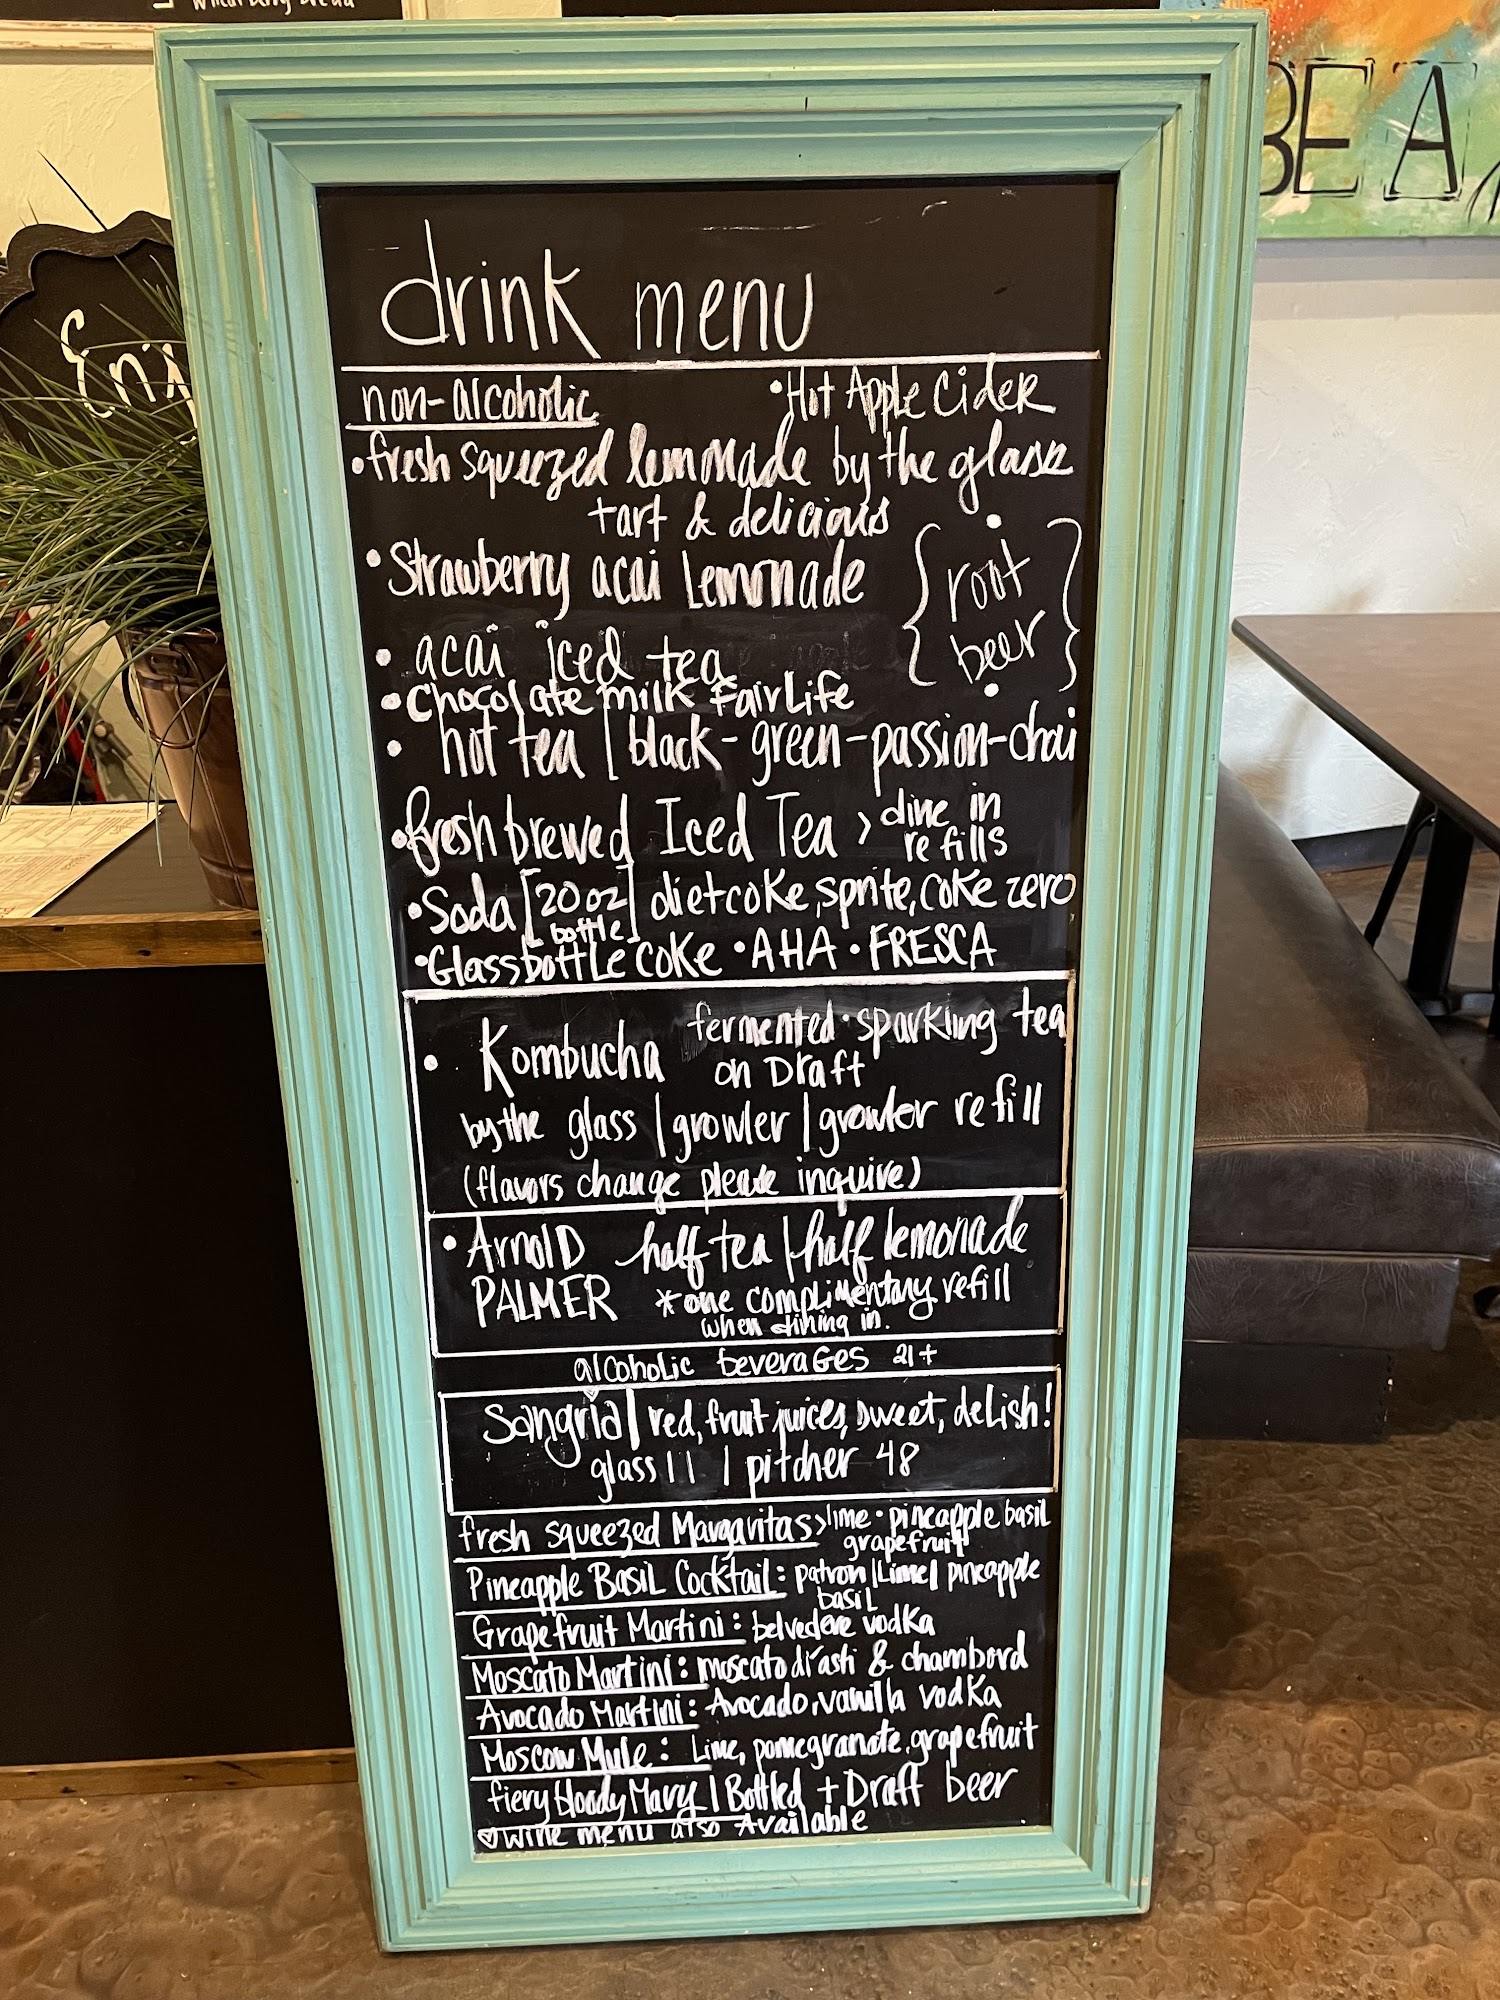 wheat berry bread
BE A
Enj
drink menu
non-alcoholic •Hot Apple Cider
•fresh squeezed lemonade by the glass
tart & delicious
•Strawberry acai Lemonade
{root beer}
•acai iced tea
•Chocolate milk FairLife
•hot tea [black-green-passion-chai
•fresh brewed Iced Tea > dine in
refills
•Soda [20 oz bottle] diet coke, sprite, coke zero
•Glass bottle coke •AHA •FRESCA
•Kombucha fermented•sparkling tea
on Draft
by the glass | growler | growler refill
(flavors change please inquire)
•Arnold half tea | half lemonade
PALMER *one complimentary refill
when dining in.
alcoholic beverages 21+
Sangria | red, fruit juices, sweet, delish!
glass 11 | pitcher 48
fresh squeezed Margaritas > lime•pineapple basil
grapefruit
Pineapple Basil Cocktail: patron | Lime | pineapple
basil
Grapefruit Martini: belvedere vodka
Moscato Martini: moscato di'asti & chambord
Avocado Martini: Avocado, vanilla vodka
Moscow Mule: Lime, pomegranate, grapefruit
fiery bloody Mary | Bottled + Draft beer
♡ wine menu also Available